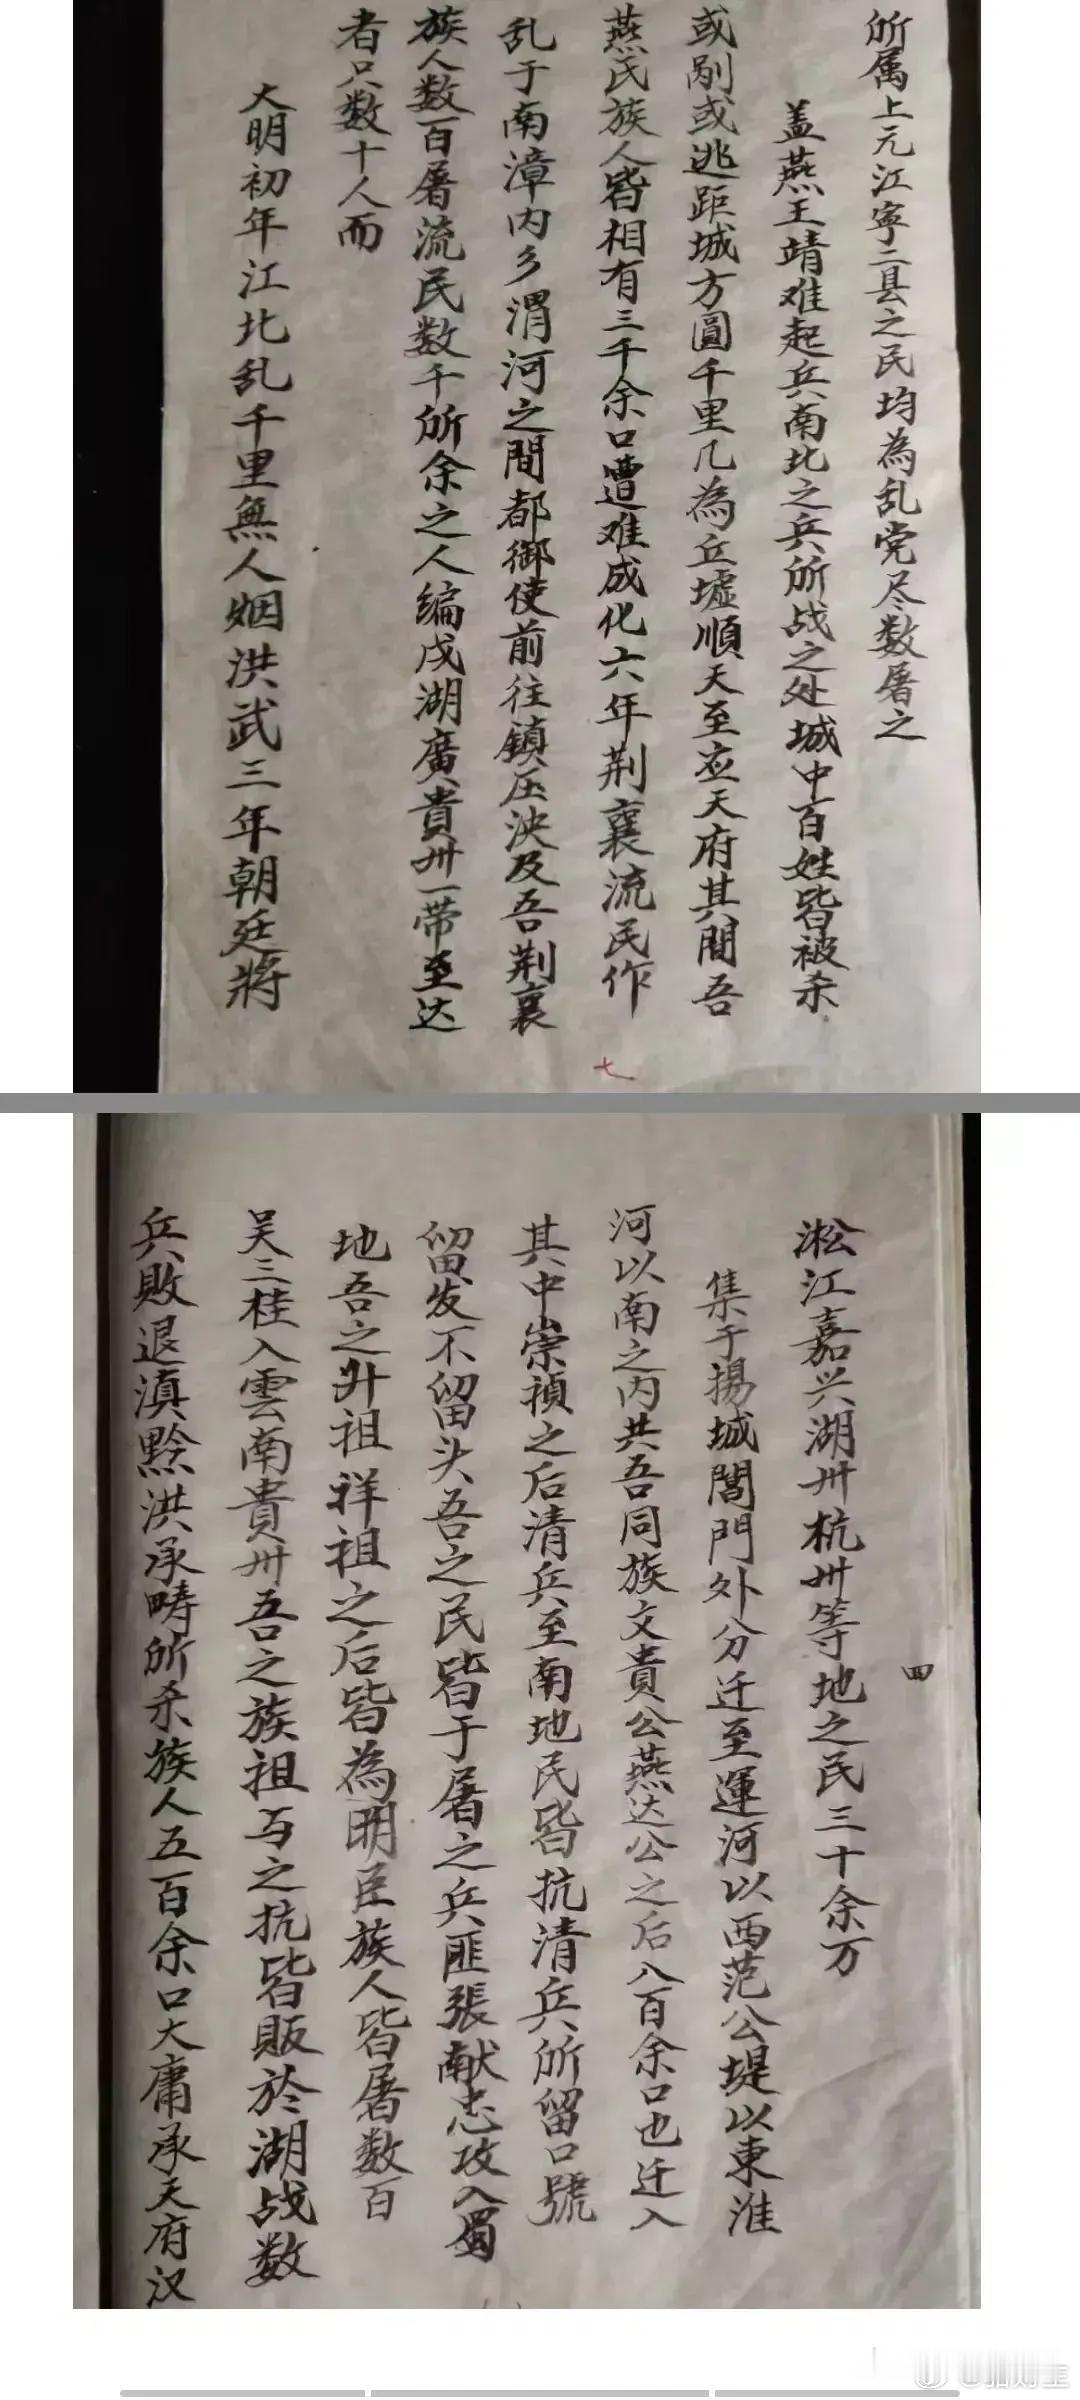 所属上元江寧二县之民均為乱党尽数屠之
盖燕王靖难起兵南北之兵所战之处城中百姓皆被杀
或剐或逃距城方圓千里几為丘墟順天至应天府其間吾
燕氏族人皆相有三千余口遭难成化六年荆襄流民作
乱于南漳内乡渭河之間都御使前往鎮压泱及吾荆襄
族人数百屠流民数千所余之人编戍湖廣貴州一带至达
者只数十人而
大明初年江北乱千里無人姻洪武三年朝廷將
七
淞江嘉兴湖州杭州等地之民三十余万
四
集于揚城閶門外分迁至運河以西范公堤以東淮
河以南之内共吾同族文貴公燕达公之后八百余口也迁入
其中崇禎之后清兵至南地民皆抗清兵所留口號
留发不留头吾之民皆于屠之兵匪張献忠攻入蜀
地吾之升祖祥祖之后皆為明臣族人皆屠数百
吴三桂入雲南貴州吾之族祖与之抗皆販於湖战数
兵敗退滇黔洪承畴所杀族人五百余口大庸承天府汉